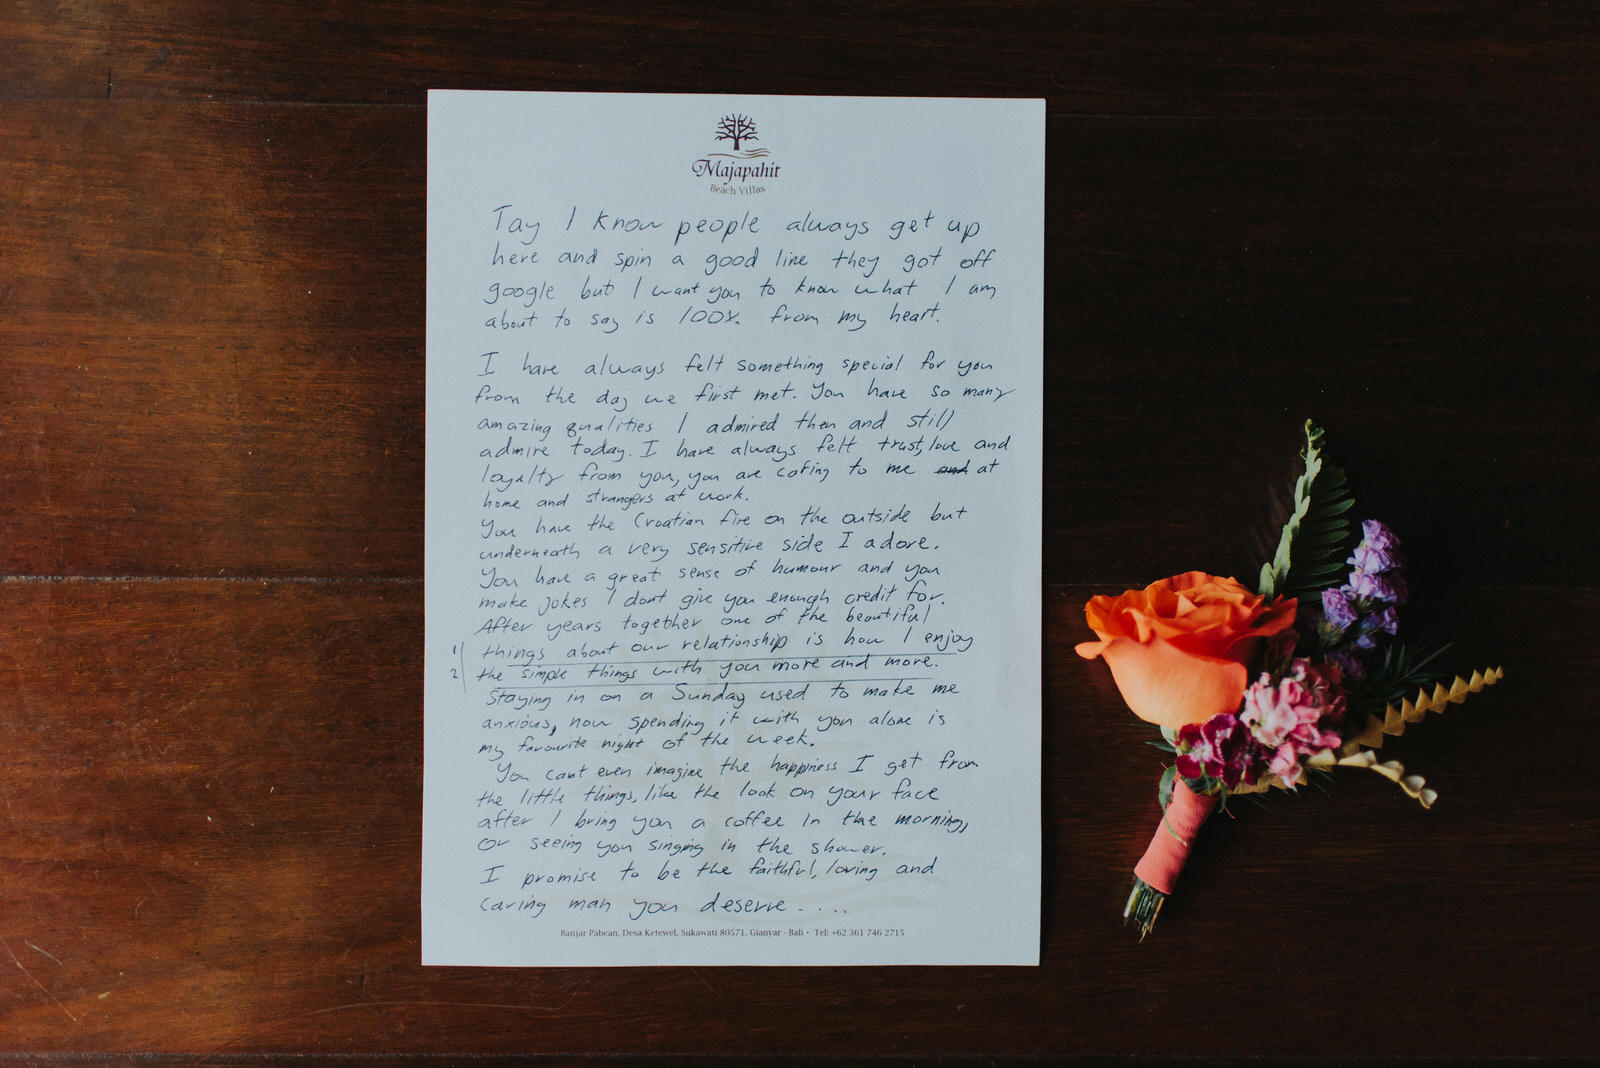 Majapahit
Beach Villas
Tay I know people always get up
here and spin a good line they got off
google but I want you to know what I am
about to say is 100% from my heart.
I have always felt something special for you
from the day we first met. You have so many
amazing qualities I admired then and still
admire today. I have always felt trust, love and
loyalty from you, you are caring to me and at
home and strangers at work.
You have the Croatian fire on the outside but
underneath a very sensitive side I adore.
You have a great sense of humour and you
make jokes I dont give you enough credit for.
After years together one of the beautiful
1 things about our relationship is how I enjoy
2 the simple things with you more and more.
Staying in on a Sunday used to make me
anxious, now spending it with you alone is
my favourite night of the week.
You cant even imagine the happiness I get from
the little things, like the look on your face
after I bring you a coffee in the morning,
or seeing you singing in the shower.
I promise to be the faithful, loving and
caring man you deserve ....
Banjar Pabean, Desa Ketewel, Sukawati 80571. Gianyar - Bali • Tel: +62 361 746 2715